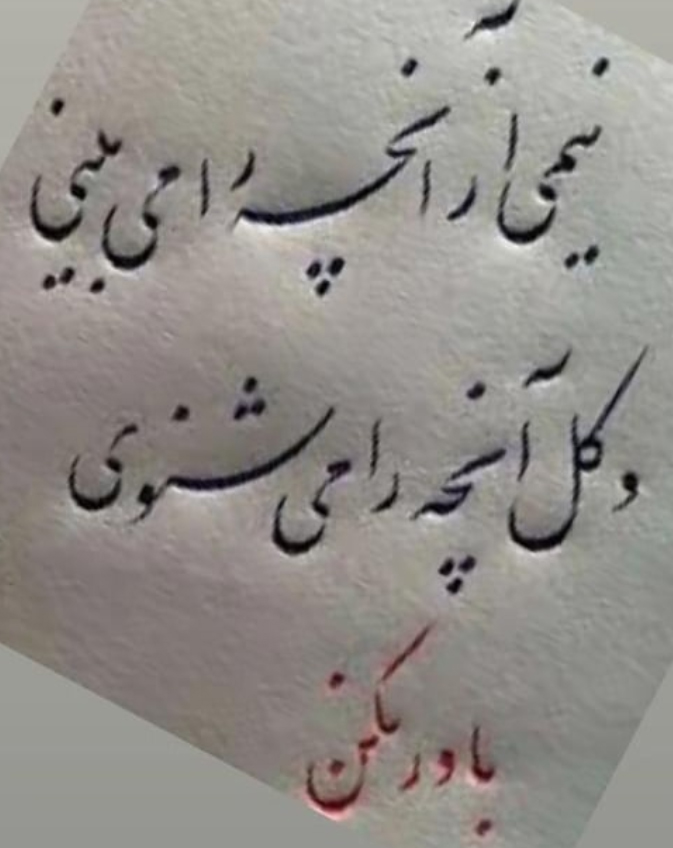 نیمی از آنچه را می بینی
و کل آنچه را می شنوی
باور مکن